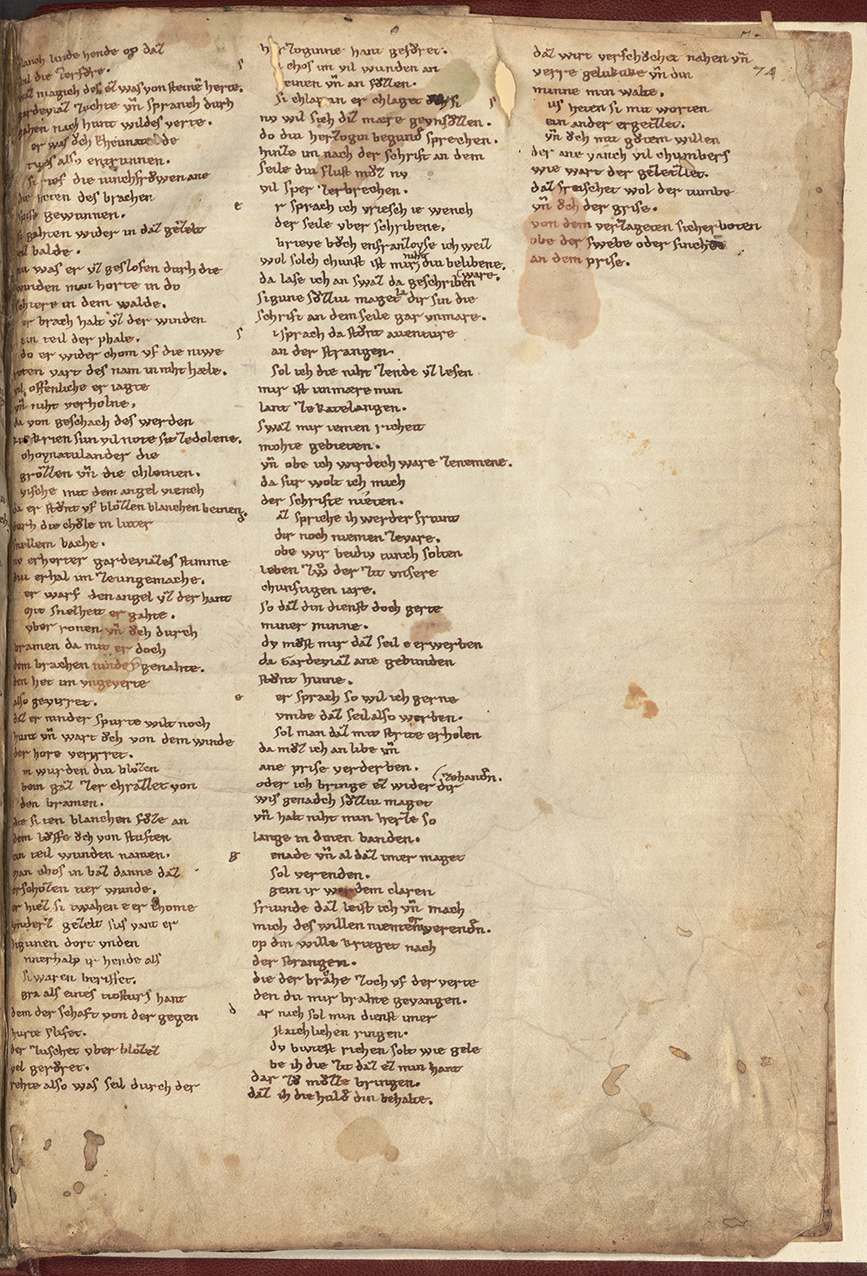 blanch linde hende op daz
seil die zerfore.
waz magich des ez was von steinen herte.
Gardeviaz zuchte vñ spranch durh
gahen nach hunt wildes verte.
er was ôch Ekhunat de
tages also entrunnen.
si rief die iunchfrôwen ane
die heten des brachen
spise gewunnen.
si gahten wider in daz gezelt
vil balde.
nu was er vz geslofen durh die
winden man horte in do
schiere in dem walde.
er brach halt vz der winden
ein teil der phale.
do er wider chom vf die niwe
roten vart des nam in niht hæle.
vil offenliche er iagte
vñ niht verholne,
da von geschach des werden
Gurzkrien sun vil note sit ze dolene.
choynatulander die
grôzzen vñ die chleinen.
vische mit dem angel viench
da er stônt vf blôzzen blanchen beinen.
durh die chôle in luter
snellem bache.
nv erhorter Gardeviazes stimme
diu erhal im ze ungemache.
er warf den angel vz der hant
mit snelheit er gahte.
vber ronen vñ ôch durch
bramen da mit er doch
dem brachen ninder genahte.
den het im ungeverte
also gevirret.
daz er ninder spurte wilt noch
hunt vñ wart ôch von dem winde
der hore verirret.
im wurden diu blôzen
bein gaz zerchrazzet von
den bramen.
die sinen blanchen fôze an
dem lôffe ôch von stiften
ein teil wunden namen.
man chos in baz danne daz
erschozen tier wunde.
er hiez si twahen e er chome
vnder gezelt sus vant er
Sigunen dort vnden
innerhalp ir hende als
si waren berifet.
gra als eines tiosturs hant
dem der schaft von der gegen
hurte slifet.
der zuschet vber blôzez
vel gerôret.
rehte also was seil durch der
herzoginne hant gefôret.
si chos im vil wunden an
beinen vñ an fôzzen.
si chlagt in er chlaget ôch si
nv wil sich diz mære geunsôzzen.
do diu herzogin begund sprechen.
hintz im nach der schrift an dem
seile diu flust môz nv
vil sper zerbrechen.
er sprach ich vriesch ie wench
der seile vber schribene,
brieve bôch enfranzoyse ich weiz
wol solch chunst ist mir niht diu belibene.
da lase ich an swaz da geschriben ware.
Sigune sôzziu maget la dir sin die
schrift an dem seile gar vnmare.
si sprach da stônt auentiure
an der strangen.
sol ich die niht zende vz lesen
mir ist unmære min
lant ze Katelangen.
swaz mir iemen richeit
mohte gebieten.
vñ obe ich wirdech ware ze nemene.
da fur wolt ich mich
der schrifte nieten.
daz spriche ih werder friunt
dir noch niemen ze vare.
obe wir beidiu iunch solten
leben zv̊ der zit vnsere
chunftigen iare.
so daz din dienst doch gerte
miner minne.
dv môst mir daz seil e erwerben
da Gardeviaz ane gebunden
stônt hinne.
er sprach so wil ich gerne
vmbe daz seil also werben.
sol man daz mit strite erholen
da môz ich an libe vñ
ane prise verderben.
oder ich bringe ez wider dir ze handen.
wis genadech sôzziu maget
vñ halt niht min herze so
lange in dinen banden.
genade vñ al daz imer maget
sol verenden.
gein ir werdem claren
friunde daz leist ich vñ mach
mich des willen niemen erwenden.
op din wille krieget nach
der strangen.
die der brache zoch vf der verte
den du mir brahte gevangen.
dar nach sol min dienst imer
staetlichen ringen.
dv biutest richen solt wie gele
be ih die zit daz ez min hant
dar zv̊ môzze bringen.
daz ih die huld din behalte.
daz wirt versôchet nahen vñ
verre gelukke vñ din
minne min walte.
sus heten si mit worten
ein ander ergezzet.
vñ ôch mit gôtem willen
der ane vanch vil chumbers
wie wart der gelezzet.
daz freischet wol der tumbe
vñ ôch der grise.
von dem verzageten sicherboten
obe der swebe oder sinche
an dem prise.
74